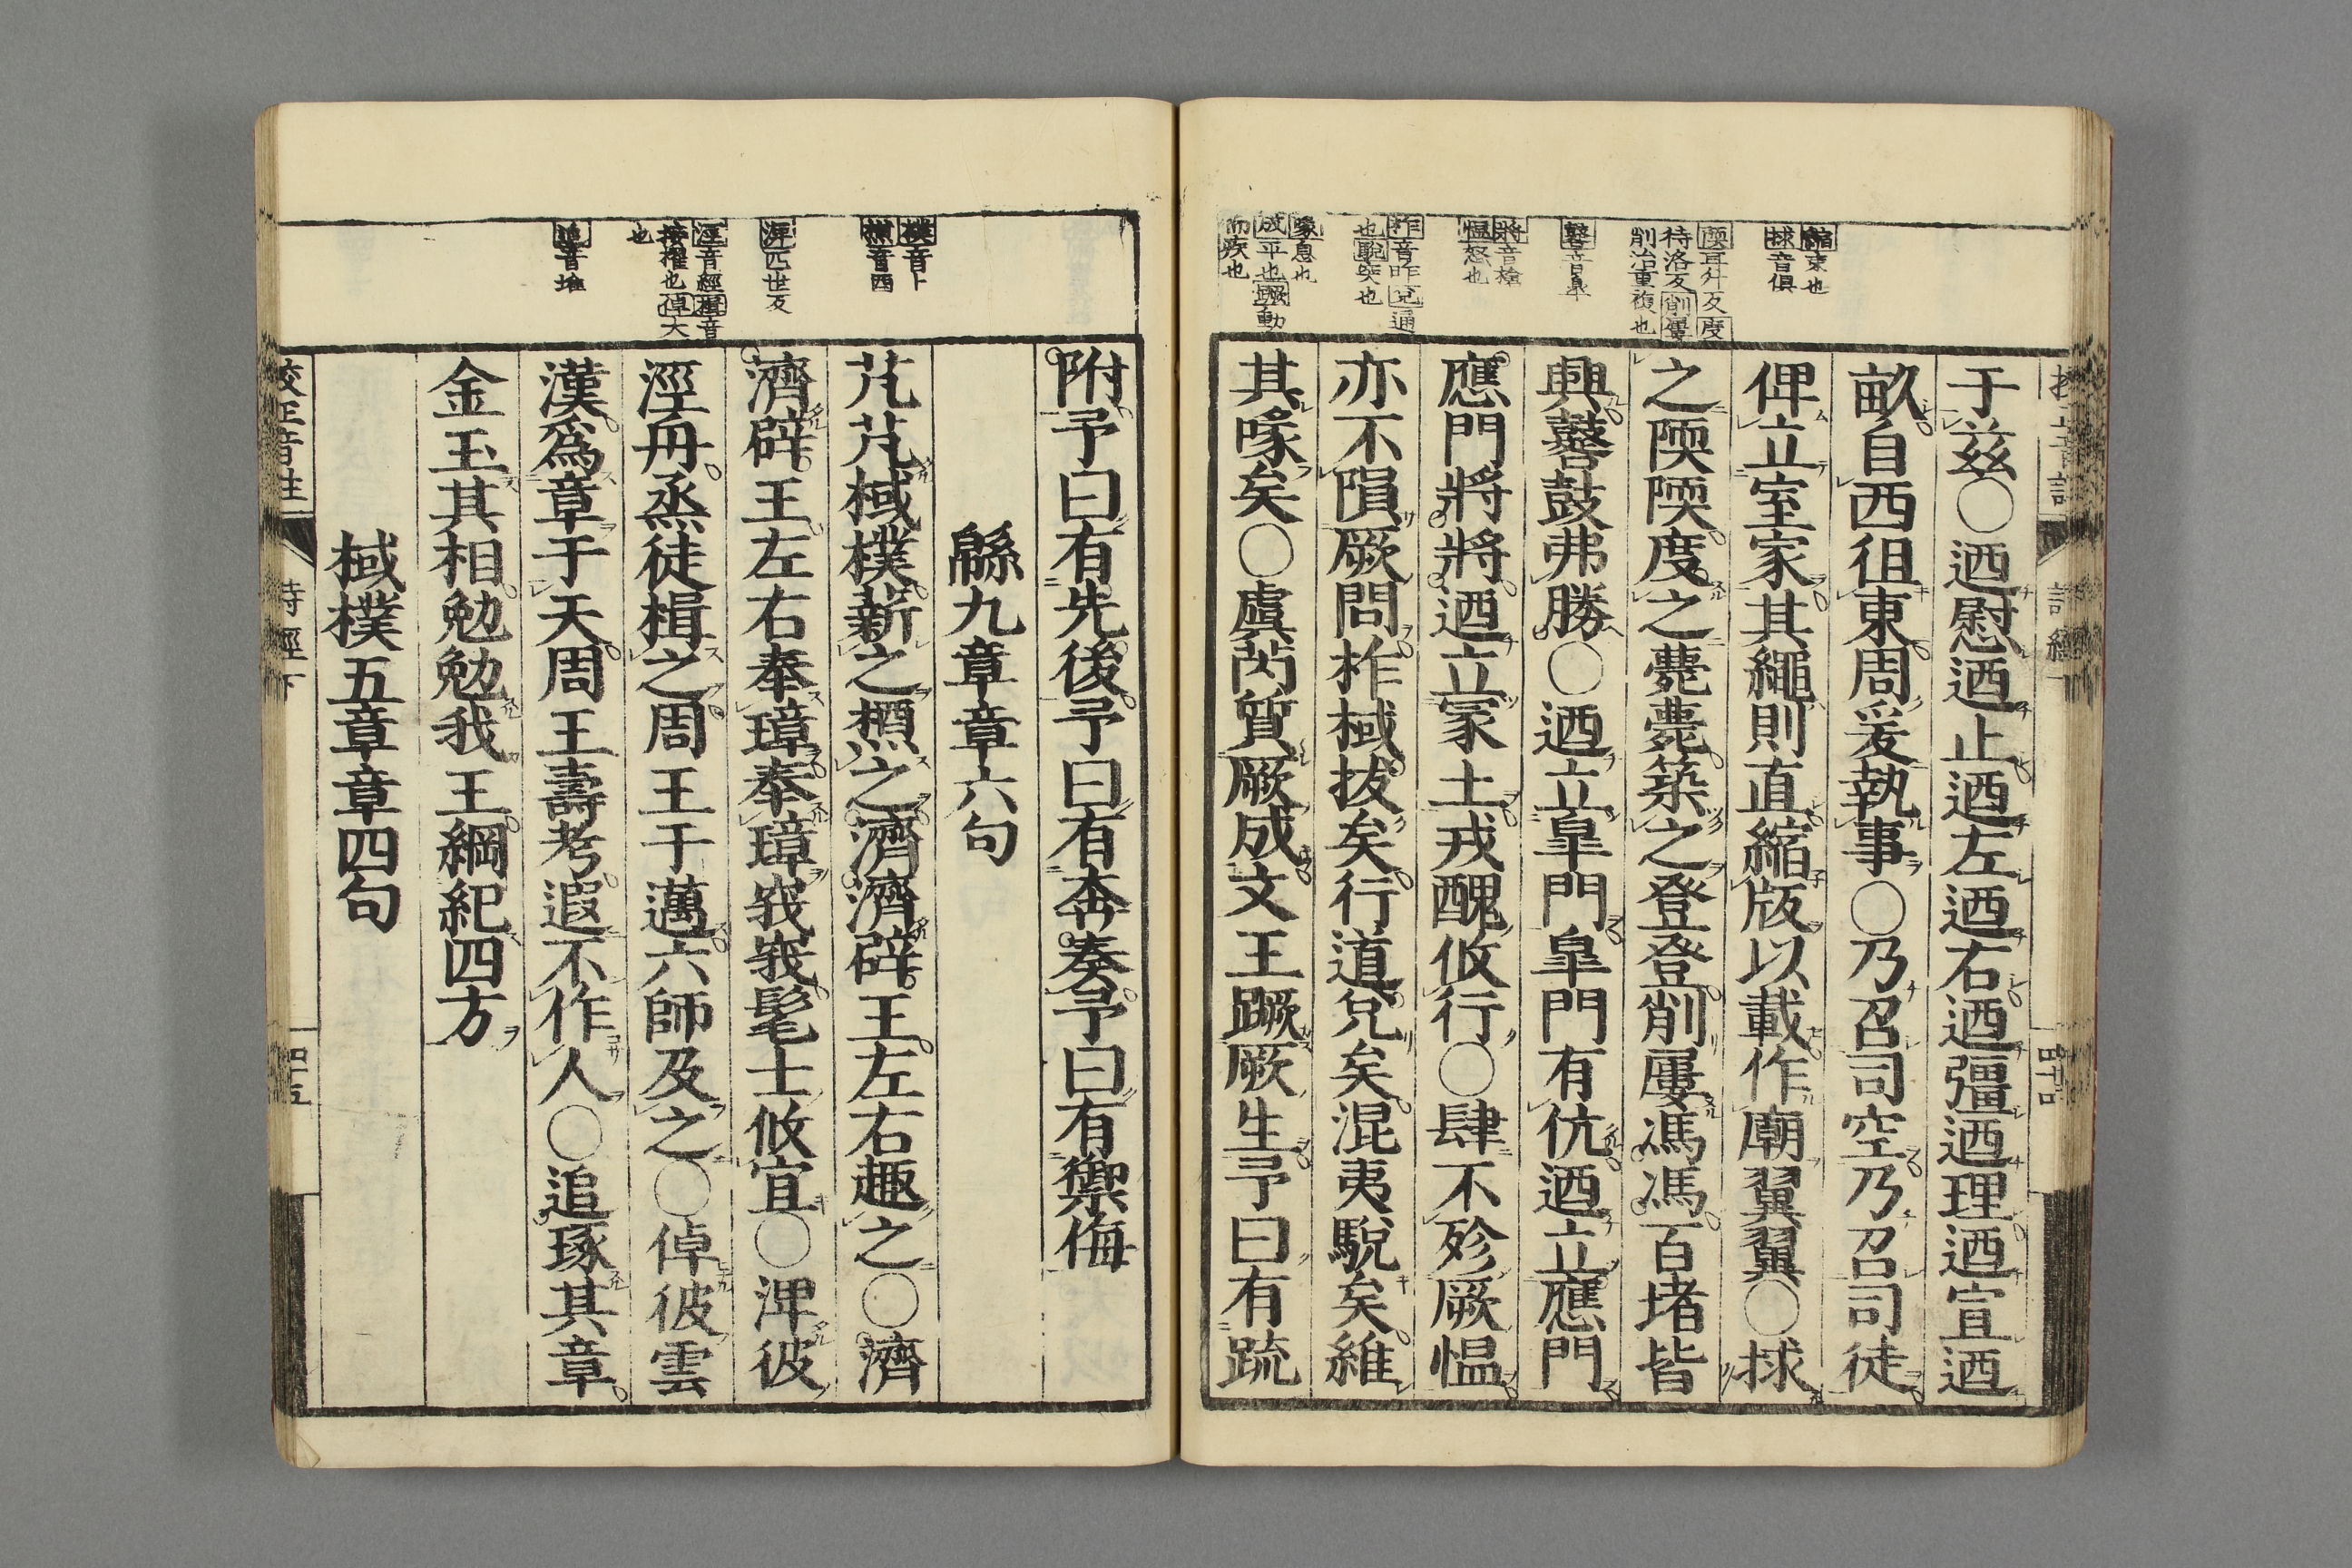 于茲○迺慰迺止迺左迺右迺彊迺理迺宣迺
畝自西徂東周爰執事○乃召司空乃召司徒
俾立室家其繩則直縮版以載作廟翼翼○捄
之陾陾度之薨薨築之登登削屢馮馮百堵皆
興鼛鼓弗勝○迺立皐門皐門有伉迺立應門
應門將將迺立冢土戎醜攸行○肆不殄厥慍
亦不隕厥問柞棫拔矣行道兌矣混夷駾矣維
其喙矣○虞芮質厥成文王蹶厥生予曰有疏
縮束也
捄音俱
陾耳升反度
待洛反削屢
削治重複也
鼛音皐
將音槍
慍怒也
柞音昨兌通
也駾突也
喙息也
成平也蹶動
而疾也
詩經
四十四
附予曰有先後予曰有奔奏予曰有禦侮
緜九章章六句
芃芃棫樸薪之槱之濟濟辟王左右趣之○濟
濟辟王左右奉璋奉璋峩峩髦士攸宜○淠彼
涇舟烝徒楫之周王于邁六師及之○倬彼雲
漢爲章于天周王壽考遐不作人○追琢其章
金玉其相勉勉我王綱紀四方
棫樸五章章四句
樸音卜
槱音酉
淠匹世反
涇音經楫音
接櫂也倬大
也
追音堆
校正音註
詩經下
四十五